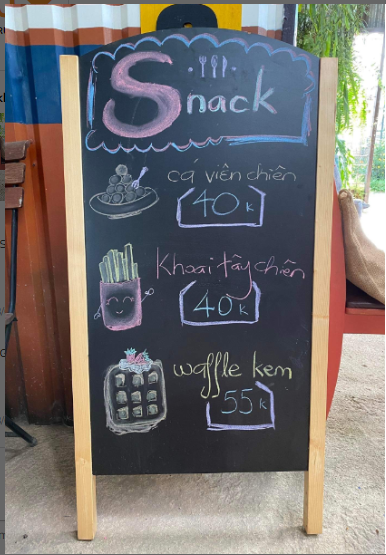 Snack
cá viên chiên
40k
Khoai tây chiên
40k
waffle kem
55k